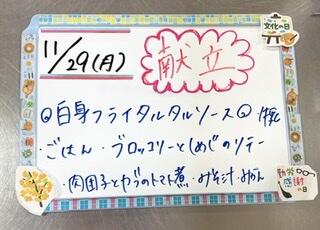 文化の日
11/29(月)
献立
◎白身フライタルタルソース◎
・ごはん・ブロッコリーとしめじのソテー
・肉団子とカブのトマト煮・みそ汁・みかん
勤労感謝の日